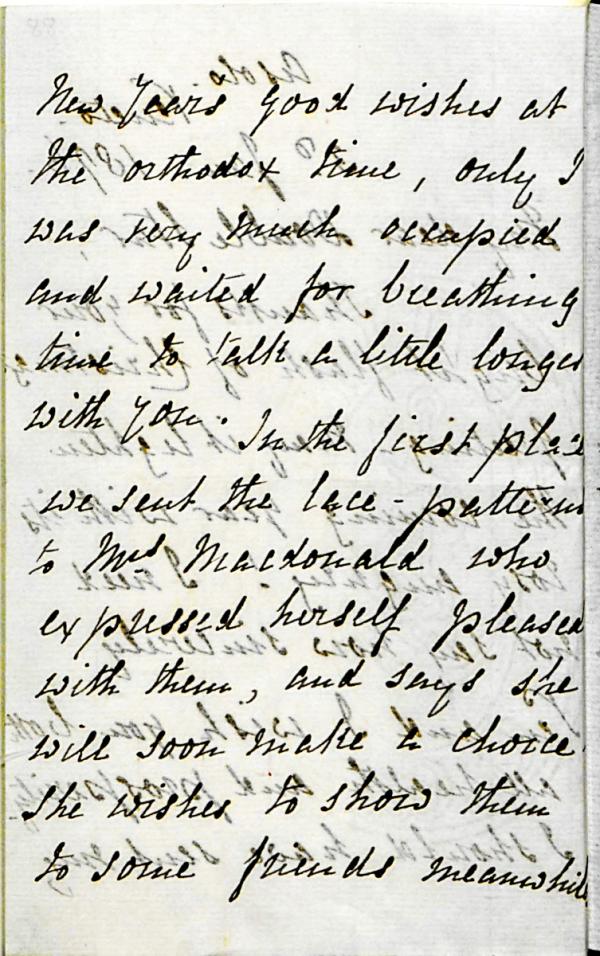 New Years good wishes at
the orthodox time, only I
was very much occupied
and waited for breathing
time to talk a little longer
with you. In the first place
we sent the lace-patterns
to Mrs Macdonald who
expressed herself pleased
with them, and says she
will soon make a choice
She wishes to show them
to some friends meanwhile